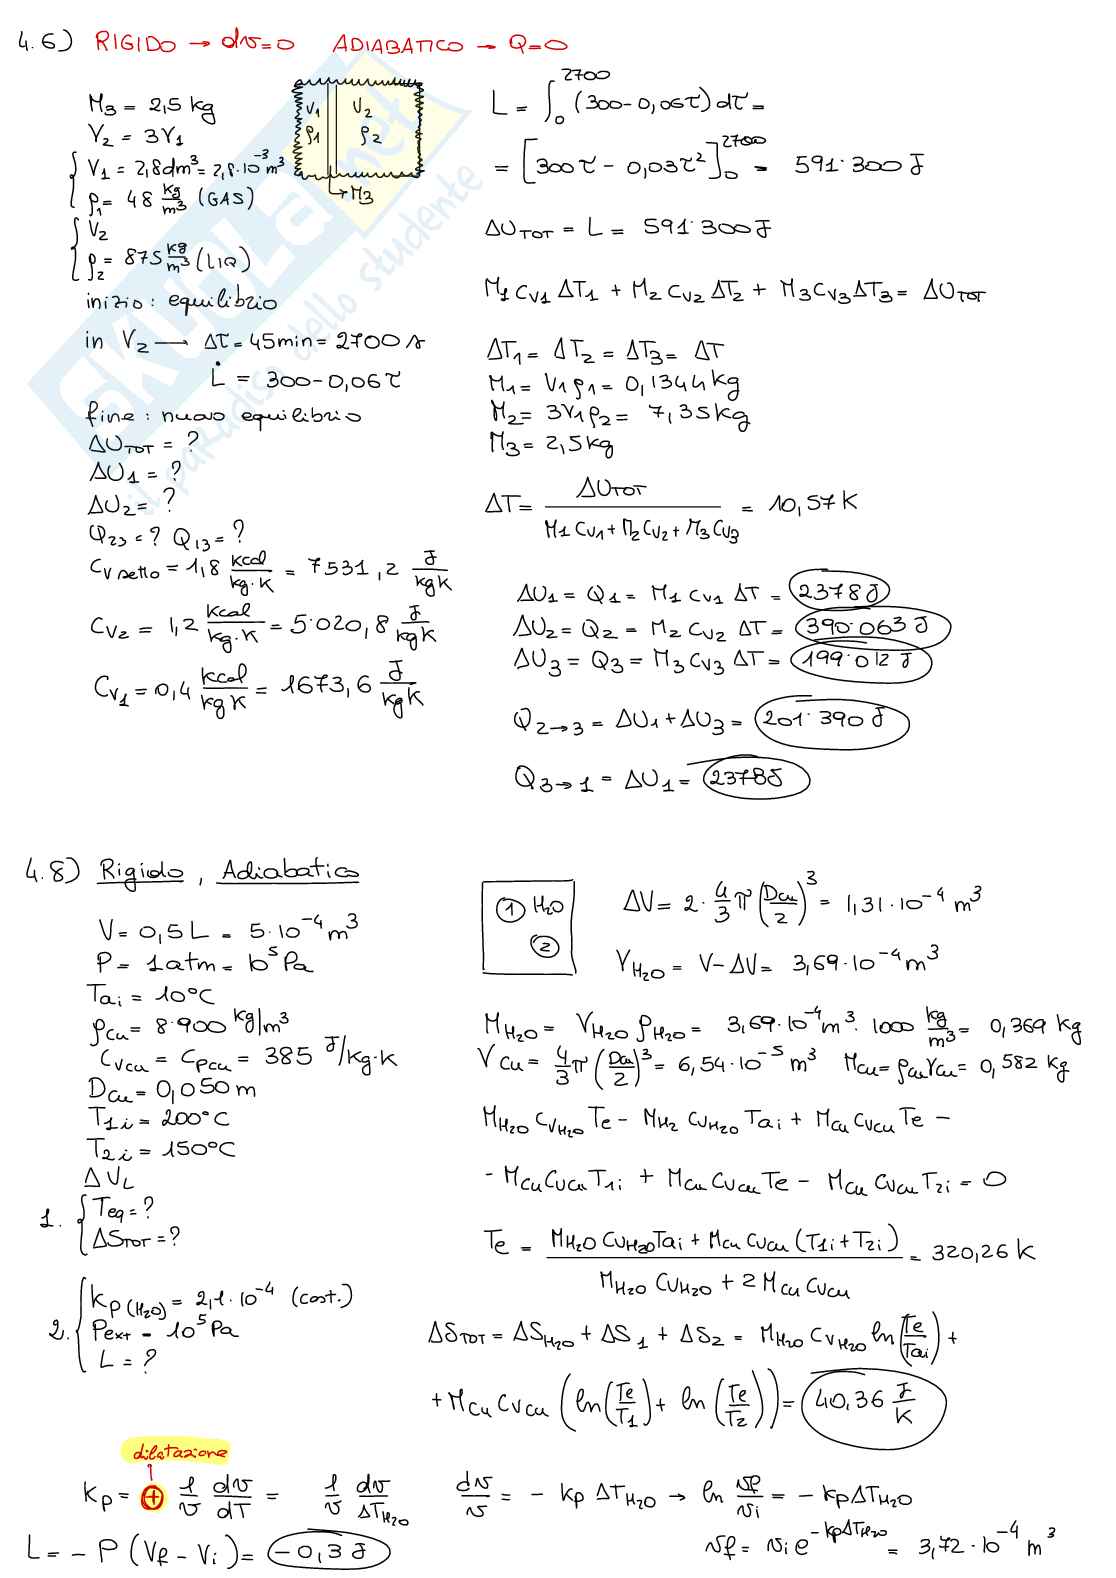 4.6) RIGIDO → dv=0 ADIABATICO → Q=0
M₃ = 2,5 kg
V₂ = 3V₁
V₁ = 2,8dm³ = 2,8·10⁻³ m³
ρ₁ = 48 kg/m³ (GAS)
V₂
ρ₂ = 875 kg/m³ (LIQ)
inizio: equilibrio
in V₂ → Δτ = 45min = 2700 s
L̇ = 300-0,06τ
fine: nuovo equilibrio
ΔU_TOT = ?
ΔU₁ = ?
ΔU₂ = ?
Q₂₃ = ? Q₁₃ = ?
C_V setto = 1,8 kcal/kg·K = 7531,2 J/kgK
C_V₂ = 1,2 kcal/kg·K = 5·020,8 J/kgK
C_V₁ = 0,4 kcal/kgK = 1673,6 J/kgK
V₁ V₂
ρ₁ ρ₂
→ M₃
L = ∫₀²⁷⁰⁰ (300-0,06τ) dτ =
= [300τ - 0,03τ²]₀²⁷⁰⁰ = 591·300 J
ΔU_TOT = L = 591·300 J
M₁ C_V₁ ΔT₁ + M₂ C_V₂ ΔT₂ + M₃ C_V₃ ΔT₃ = ΔU_TOT
ΔT₁ = ΔT₂ = ΔT₃ = ΔT
M₁ = V₁ρ₁ = 0,1344 kg
M₂ = 3V₁ρ₂ = 7,35 kg
M₃ = 2,5 kg
ΔT = ΔU_TOT / (M₁ C_V₁ + M₂ C_V₂ + M₃ C_V₃) = 10,57 K
ΔU₁ = Q₁ = M₁ C_V₁ ΔT = 2378 J
ΔU₂ = Q₂ = M₂ C_V₂ ΔT = 390·063 J
ΔU₃ = Q₃ = M₃ C_V₃ ΔT = 199·012 J
Q₂→₃ = ΔU₁ + ΔU₃ = 201·390 J
Q₃→₁ = ΔU₁ = 2378 J
4.8) Rigido, Adiabatico
V = 0,5 L = 5·10⁻⁴ m³
P = 1 atm = 10⁵ Pa
Tai = 10°C
ρcu = 8·900 kg/m³
C_Vcu = C_pcu = 385 J/kg·K
Dcu = 0,050 m
T₁i = 200°C
T₂i = 150°C
ΔV_L
1. Teq = ?
ΔS_TOT = ?
2. Kp(H₂O) = 2,1·10⁻⁴ (cost.)
Pext = 10⁵ Pa
L = ?
① H₂O
②
ΔV = 2·4/3 π (Dcu/2)³ = 1,31·10⁻⁴ m³
V_H₂O = V-ΔV = 3,69·10⁻⁴ m³
M_H₂O = V_H₂O ρ_H₂O = 3,69·10⁻⁴ m³·1000 kg/m³ = 0,369 kg
Vcu = 4/3 π (Dcu/2)³ = 6,54·10⁻⁵ m³ Mcu = ρcu Vcu = 0,582 kg
M_H₂O C_VH₂O Te - M_H₂ C_VH₂O Tai + Mcu C_Vcu Te -
- Mcu C_Vcu T₁i + Mcu C_Vcu Te - Mcu C_Vcu T₂i = 0
Te = (M_H₂O C_VH₂O Tai + Mcu C_Vcu (T₁i + T₂i)) / (M_H₂O C_VH₂O + 2 Mcu C_Vcu) = 320,26 K
ΔS_TOT = ΔS_H₂O + ΔS₁ + ΔS₂ = M_H₂O C_VH₂O ln(Te/Tai) +
+ Mcu C_Vcu (ln(Te/T₁) + ln(Te/T₂)) = 40,36 J/K
dilatazione
Kp = + 1/v dv/dT = 1/v dv/ΔT_H₂O dv/v = - Kp ΔT_H₂O → ln vf/vi = - KpΔT_H₂O
L = - P (Vf - Vi) = -0,3 J vf = vi e^(-KpΔT_H₂O) = 3,72·10⁻⁴ m³
SKUOLA.net
il paradiso dello studente